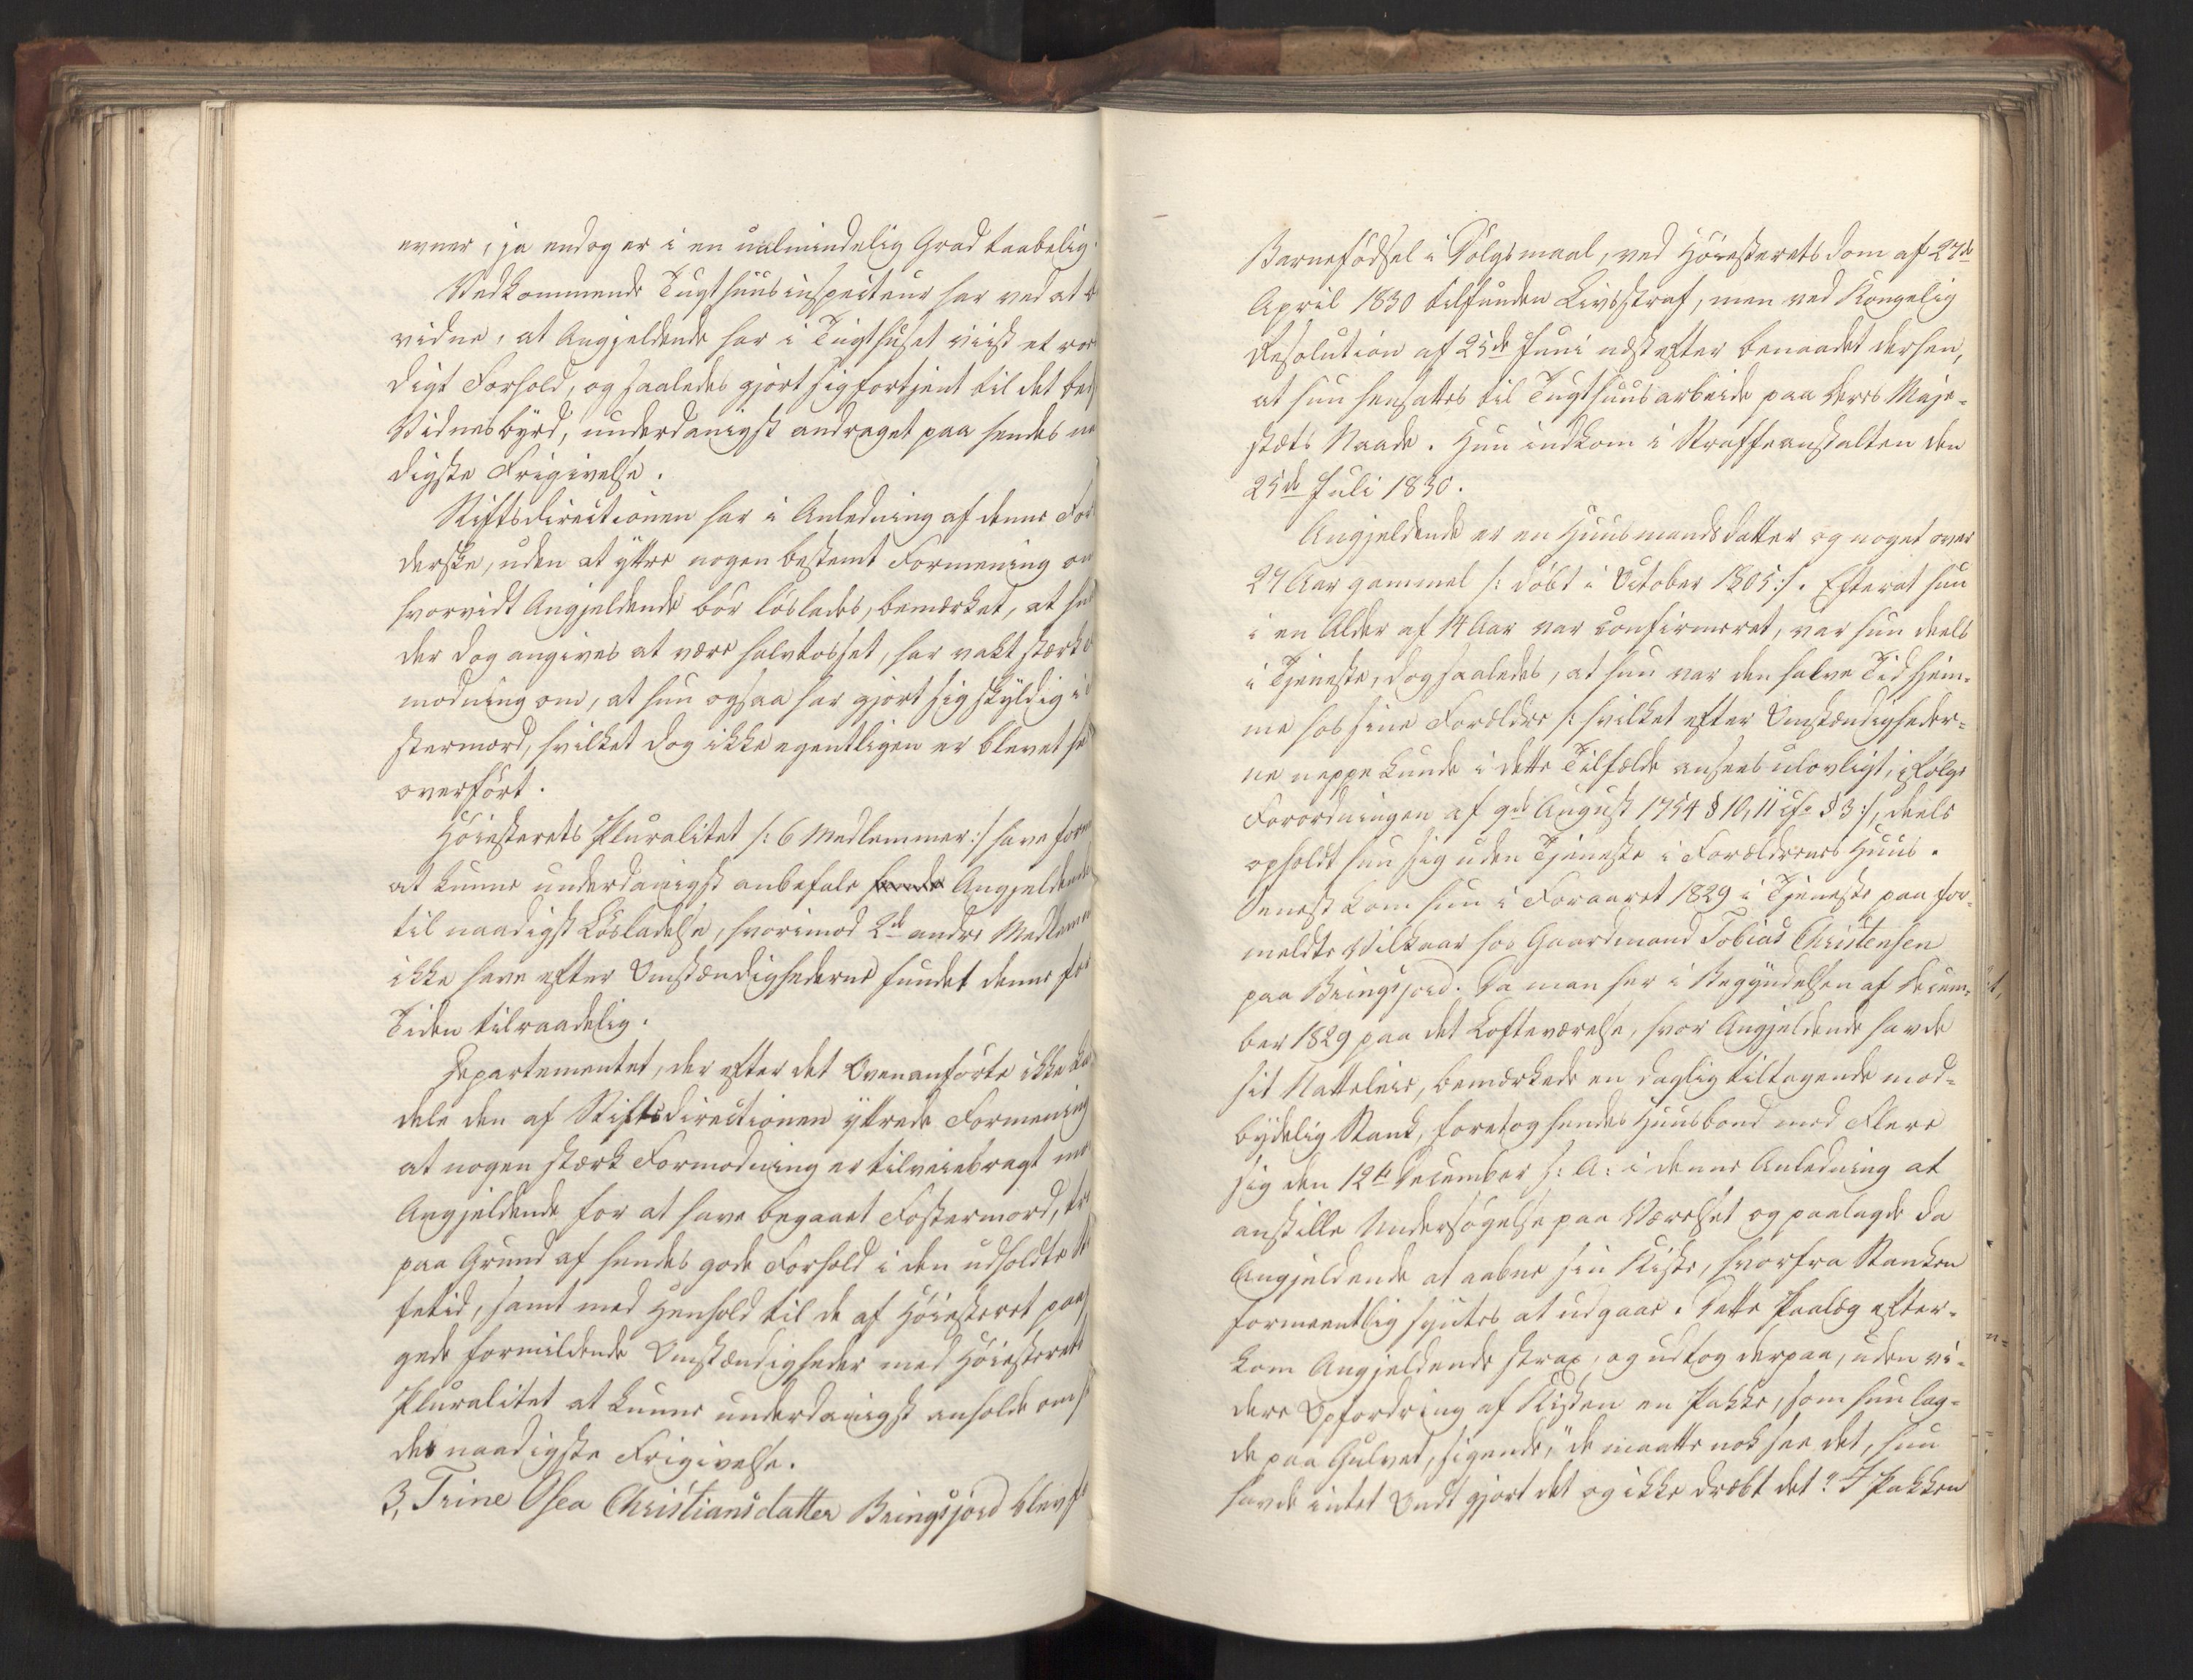 evner, ja endog er i en ualmindelig Grad taabelig.
Vedkommende Tugthuusinspecteur har ved at
vidne, at Angjeldende har i Tugthuset viist et
digt Forhold, og saaledes gjort sig fortjent til det
Vidnesbyrd, underdanigst andraget paa hendes
digste Frigivelse.
Stiftsdirectionen har i Anledning af denne
derske, uden at yttre nogen bestemt Formening
hvorvidt Angjeldende bör löslades, bemærket, at
der dog angives at være halvtosset, har vakt stærk
modning om, at hun ogsaa har gjort sig skyldig i
stermord, hvilket dog ikke egentligen er blevet
overfört.
Höiesterets Pluralitet /: 6 Medlemmer :/ have
at kunne underdanigst anbefale Angjeldende
til naadigst Lösladelse, hvorimod 2de andre Medlemmer
ikke have efter Omstændighederne fundet denne for
Tiden tilraadelig.
Departementet, der efter det Ovenanförte ikke kan
dele den af Stiftsdirectionen yttrede Formening
at nogen stærk Formodning er tilveiebragt mod
Angjeldende for at have begaaet Fostermord,
paa Grund af hendes gode Forhold i den udholdte
fetid, samt med Henhold til de af Höiesteret
gede formildende Omstændigheder med Höiesterets
Pluralitet at kunne underdanigst anholde om
des naadigste Frigivelse.
3, Trine Osea Christiansdatter Bringsjord blev
Barnefödsel i Dølgsmaal, ved Höiesteretsdom af 27de
April 1830 tilfunden Livsstraf, men ved Kongelig
Resolution af 25de Juni næstefter benaadet derhen,
at hun hensattes til Tugthuusarbeide paa Deres Maje-
stæts Naade. Hun indkom i Straffeanstalten den
25de Juli 1830.
Angjeldende er en Huusmandsdatter og noget over
27 Aar gammel /: döbt i October 1805 :/. Efterat hun
i en Alder af 14 Aar var confirmeret, var hun deels
i Tjeneste, dog saaledes, at hun var den halve Tid hjem-
me hos sine Forældre /: hvilket efter Omstændigheder-
ne neppe kunde i dette Tilfælde ansees ulovligt, ifølge
Forordningen af 9de August 1754 § 10, 11 cfr § 3 :/, deels
opholdt hun sig uden Tjeneste i Forældrenes Huus.
Senest kom hun i Foraaret 1829 i Tjeneste paa for-
meldte Vilkaar hos Gaardmand Tobias Christensen
paa Bringsjord. Da man her i Begyndelsen af Decem-
ber 1829 paa det Lofteværelse, hvor Angjeldende havde
sit Natteleie, bemærkede en daglig tiltagende mod-
bydelig Stank, foretog hendes Huusbond med Flere
sig den 12te December s: A: i denne Anledning at
anstille Undersögelse paa Værelset og paalagde da
Angjeldende at aabne sin Kiste, hvorfra Stanken
formeentlig syntes at udgaae. Dette Paalæg efter-
kom Angjeldende strax, og udtog derpaa, uden vi-
dere Opfordring af Kisten en Pakke, som hun lag-
de paa Gulvet, sigende, "de maatte nok see det, hun
havde intet Ondt gjort det og ikke dræbt det." I Pakken